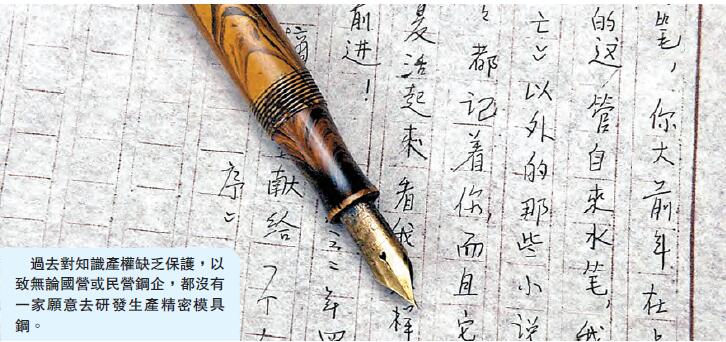 笔，你大前年在
的这管自来水笔，我
以外的那些小说
都记着你，而且它
复活起来看我 样
前进！
年四
献给
序
過去對知識產權缺乏保護，以
致無論國營或民營鋼企，都沒有
一家願意去研發生產精密模具
鋼。